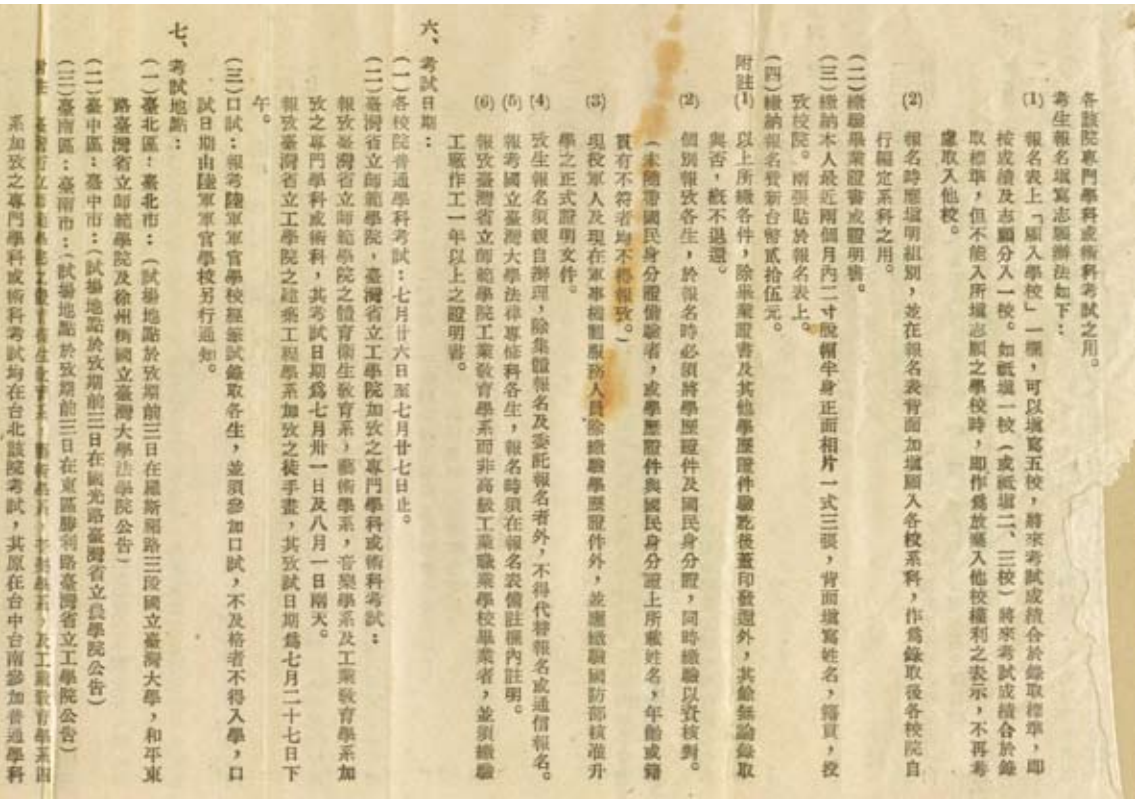 各該院專門學科或術科考試之用。
考生報名填寫志願辦法如下：
(1) 報名表上「願入學校」一欄，可以填寫五校，將來考試成績合於錄取標準，即
按成績及志願分入一校。如祇填一校（或祇填二、三校）將來考試成績合於錄
取標準，但不能入所填志願之學校時，即作為放棄入他校權利之表示，不再考
慮取入他校。
(2) 報名時應填明組別，並在報名表背面加填願入各校系科，作為錄取後各校院自
行編定系科之用。
(二)繳驗畢業證書或證明書。
(三)繳納本人最近兩個月內二寸脫帽半身正面相片一式三張，背面填寫姓名，籍貫，投
攷校院。兩張貼於報名表上。
(四)繳納報名費新台幣貳拾伍元。
附註(1) 以上所繳各件，除畢業證書及其他學歷證件驗訖後蓋印發還外，其餘無論錄取
與否，概不退還。
(2) 個別報攷各生，於報名時必須將學歷證件及國民身分證，同時繳驗以資核對。
（未隨帶國民身分證備驗者，或學歷證件與國民身分證上所載姓名，年齡或籍
貫有不符者均不得報攷。）
(3) 現役軍人及現在軍事機關服務人員除繳驗學歷證件外，並應繳驗國防部核准升
學之正式證明文件。
(4) 攷生報名須親自辦理，除集體報名及委託報名者外，不得代替報名或通信報名。
(5) 報考國立臺灣大學法律專修科各生，報名時須在報名表備註欄內註明。
(6) 報攷臺灣省立師範學院工業敎育學系而非高級工業職業學校畢業者，並須繳驗
工廠作工一年以上之證明書。
六、考試日期：
(一)各校院普通學科考試：七月廿六日至七月廿七日止。
(二)臺灣省立師範學院，臺灣省立工學院加攷之專門學科或術科考試：
報攷臺灣省立師範學院之體育衛生敎育系，藝術學系，音樂學系及工業敎育學系加
攷之專門學科或術科，其考試日期爲七月卅一日及八月一日兩天。
報攷臺灣省立工學院之建築工程學系加攷之徒手畫，其攷試日期爲七月二十七日下
午。
(三)口試：報考陸軍軍官學校經筆試錄取各生，並須參加口試，不及格者不得入學，口
試日期由陸軍軍官學校另行通知。
七、考試地點：
(一)臺北區：臺北市：（試場地點於攷期前三日在羅斯福路三段國立臺灣大學，和平東
路臺灣省立師範學院及徐州街國立臺灣大學法學院公告）
(二)臺中區：臺中市：（試場地點於攷期前三日在國光路臺灣省立農學院公告）
(三)臺南區：臺南市：（試場地點於攷期前三日在東區勝利路臺灣省立工學院公告）
附註 臺灣省立師範學院之體育衛生敎育系，藝術學系，音樂學系，及工業敎育學系四
系加攷之專門學科或術科考試均在台北該院考試，其原在台中台南參加普通學科